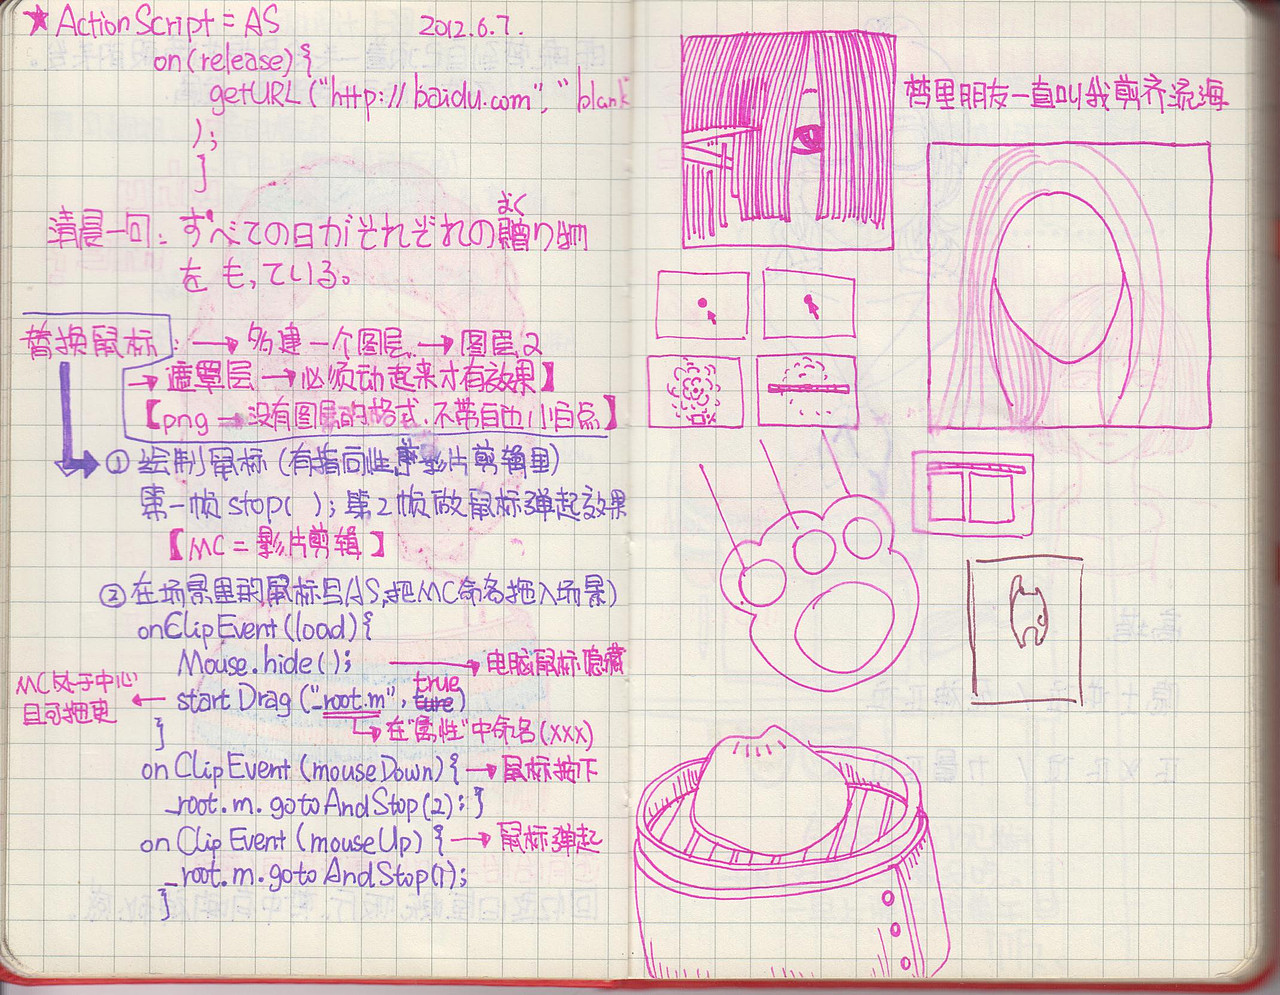 ★ ActionScript = AS 2012.6.7.
on(release){
getURL("http://baidu.com", "blank"
);
}
清晨一句：すべての日がそれぞれの贈り物
ぞく
をもっている。
替换鼠标：→ 多建一个图层 → 图层2
→ 遮罩层 → 必须动起来才有效果】
【png → 没有图层的格式.不带自也小白点】
① 绘制鼠标 (有指向性, 影片剪辑里)
第一帧stop( ); 第2帧做鼠标弹起效果
【MC = 影片剪辑】
② 在场景里的鼠标写AS,把MC命名拖入场景)
onClipEvent(load){
Mouse.hide(); → 电脑鼠标隐藏
MC处于中心
且可拖更
← startDrag("_root.m", ture)
true
→ 在"属性"中命名(xxx)
}
onClipEvent(mouseDown){ → 鼠标按下
_root.m.gotoAndStop(2); }
onClipEvent(mouseUp){ → 鼠标弹起
_root.m.gotoAndStop(1);
}
梦里朋友一直叫我剪齐流海